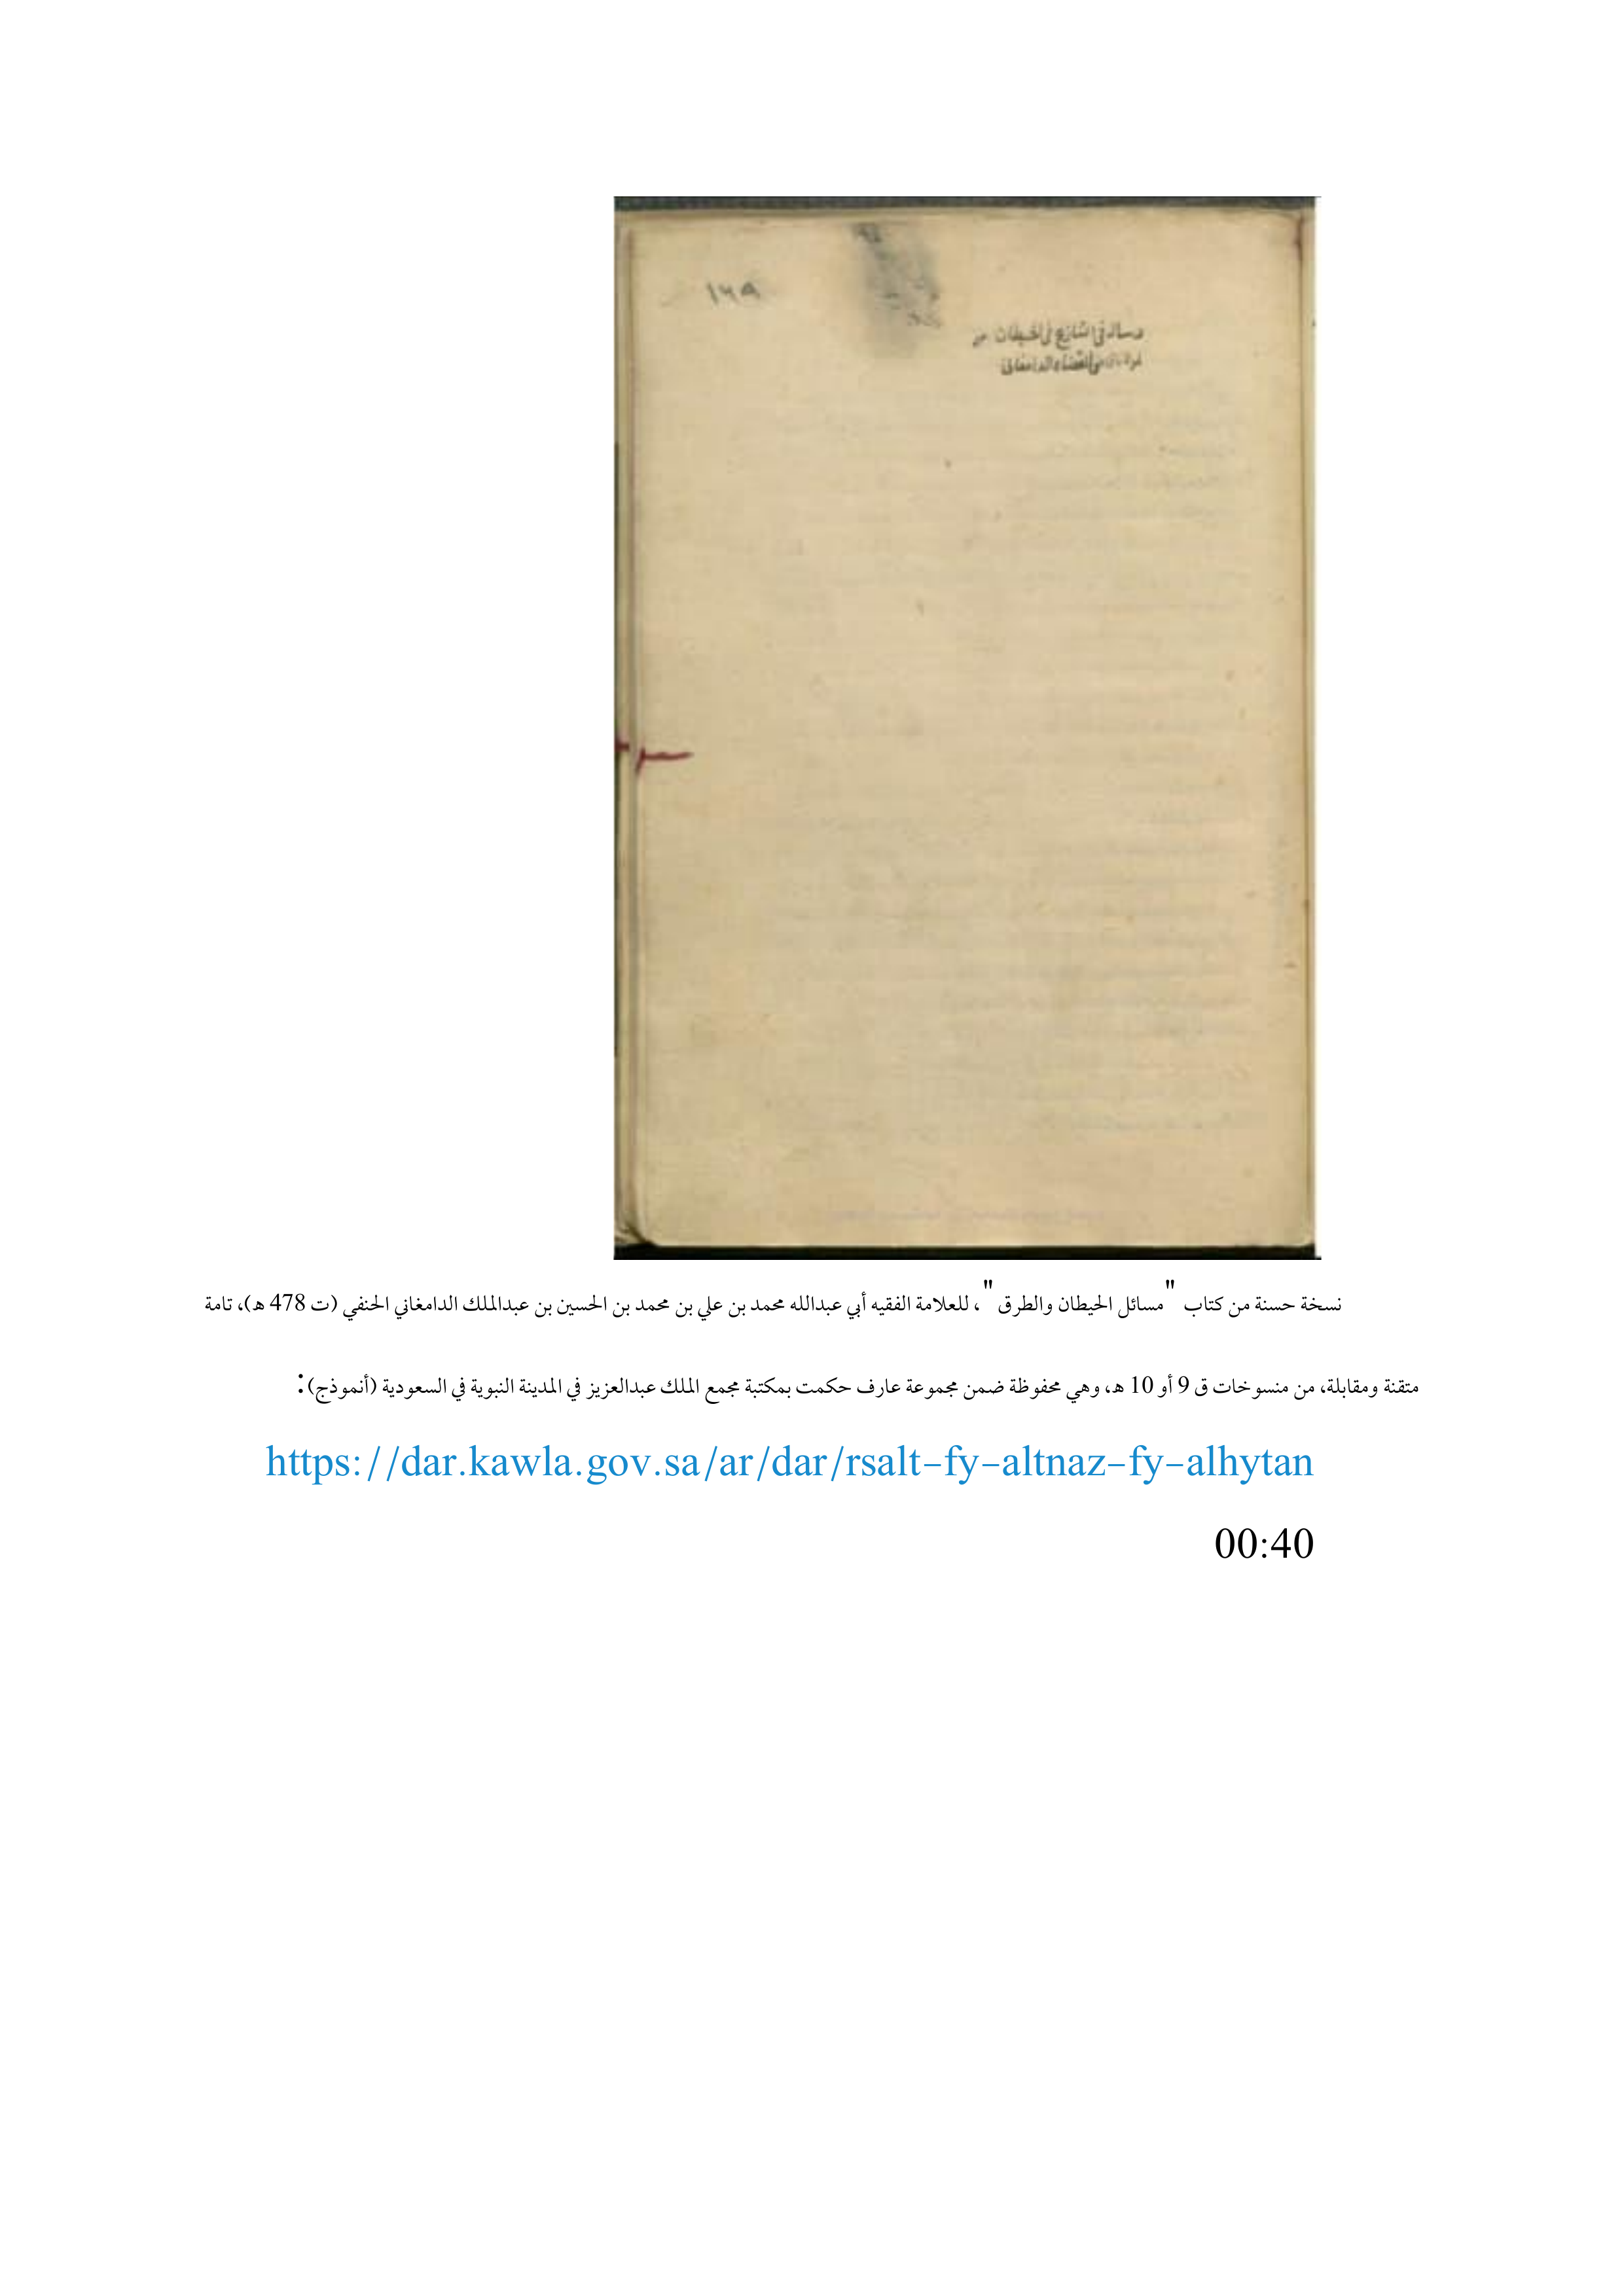 ١٦٩
رسالة في التنازع في الحيطان من
قاضي القضاة الدامغاني
نسخة حسنة من كتاب "مسائل الحيطان والطرق"، للعلامة الفقيه أبي عبدالله محمد بن علي بن محمد بن الحسين بن عبدالملك الدامغاني الحنفي (ت 478 هـ)، تامة
متقنة ومقابلة، من منسوخات ق 9 أو 10 هـ، وهي محفوظة ضمن مجموعة عارف حكمت بمكتبة مجمع الملك عبدالعزيز في المدينة النبوية في السعودية (أنموذج):
https://dar.kawla.gov.sa/ar/dar/rsalt-fy-altnaz-fy-alhytan
00:40